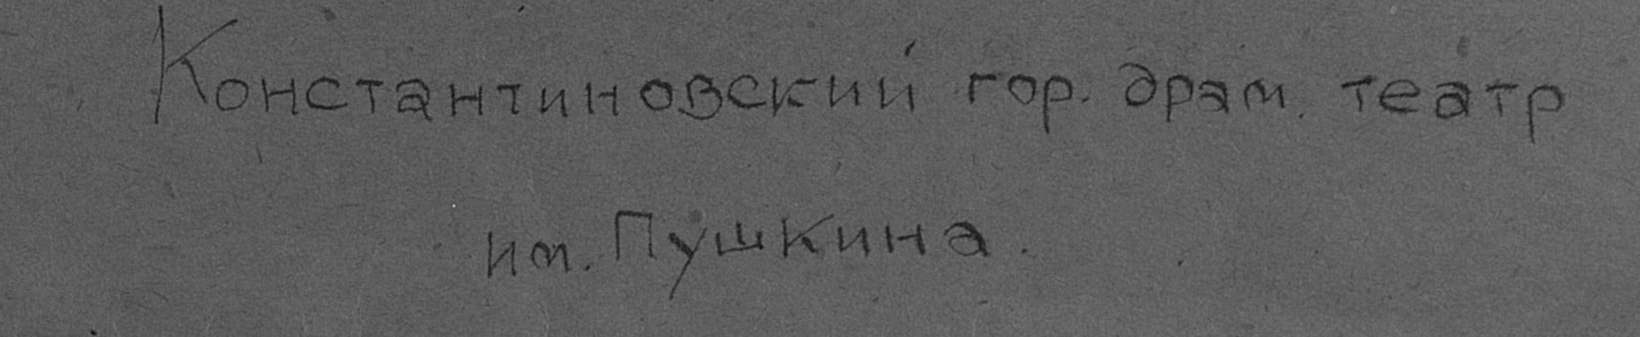 Константиновский гор. драм. театр
им. Пушкина.